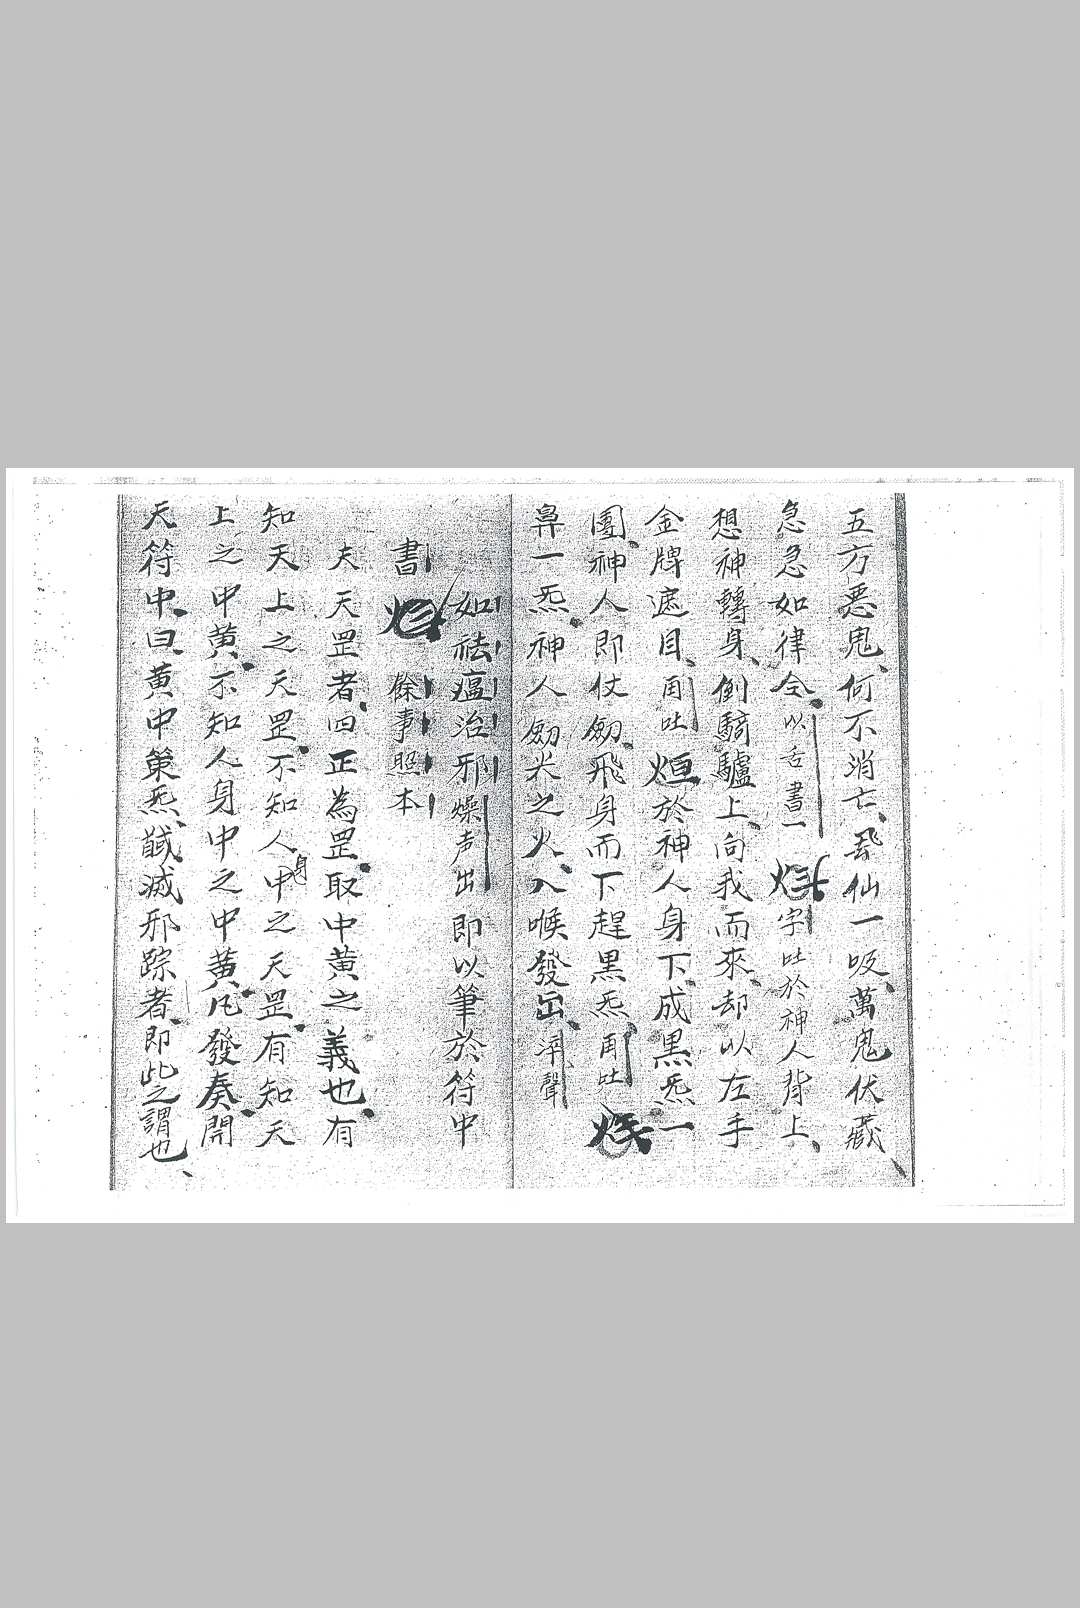 五方惡鬼、何不消亡、飛仙一吸、萬鬼伏藏、
急急如律令、以舌書一 字吐於神人背上、
想神轉身、倒騎驢上、向我而來、却以左手
金牌遮目、用吐 烜 於神人身下、成黑炁一
團、神人即仗劔、飛身而下趕黑炁 用吐
鼻一炁、神人劔光之火、入喉發出、淬聲
如祛瘟治邪燥声出即以筆於符中
書 餘事照本
夫天罡者、四正為罡、取中黄之義也、有
知天上之天罡、不知人身中之天罡、有知天
上之中黄、不知人身中之中黄、凡發奏、開
天符中、曰、黄中策炁、馘滅邪踪者、即此之謂也、